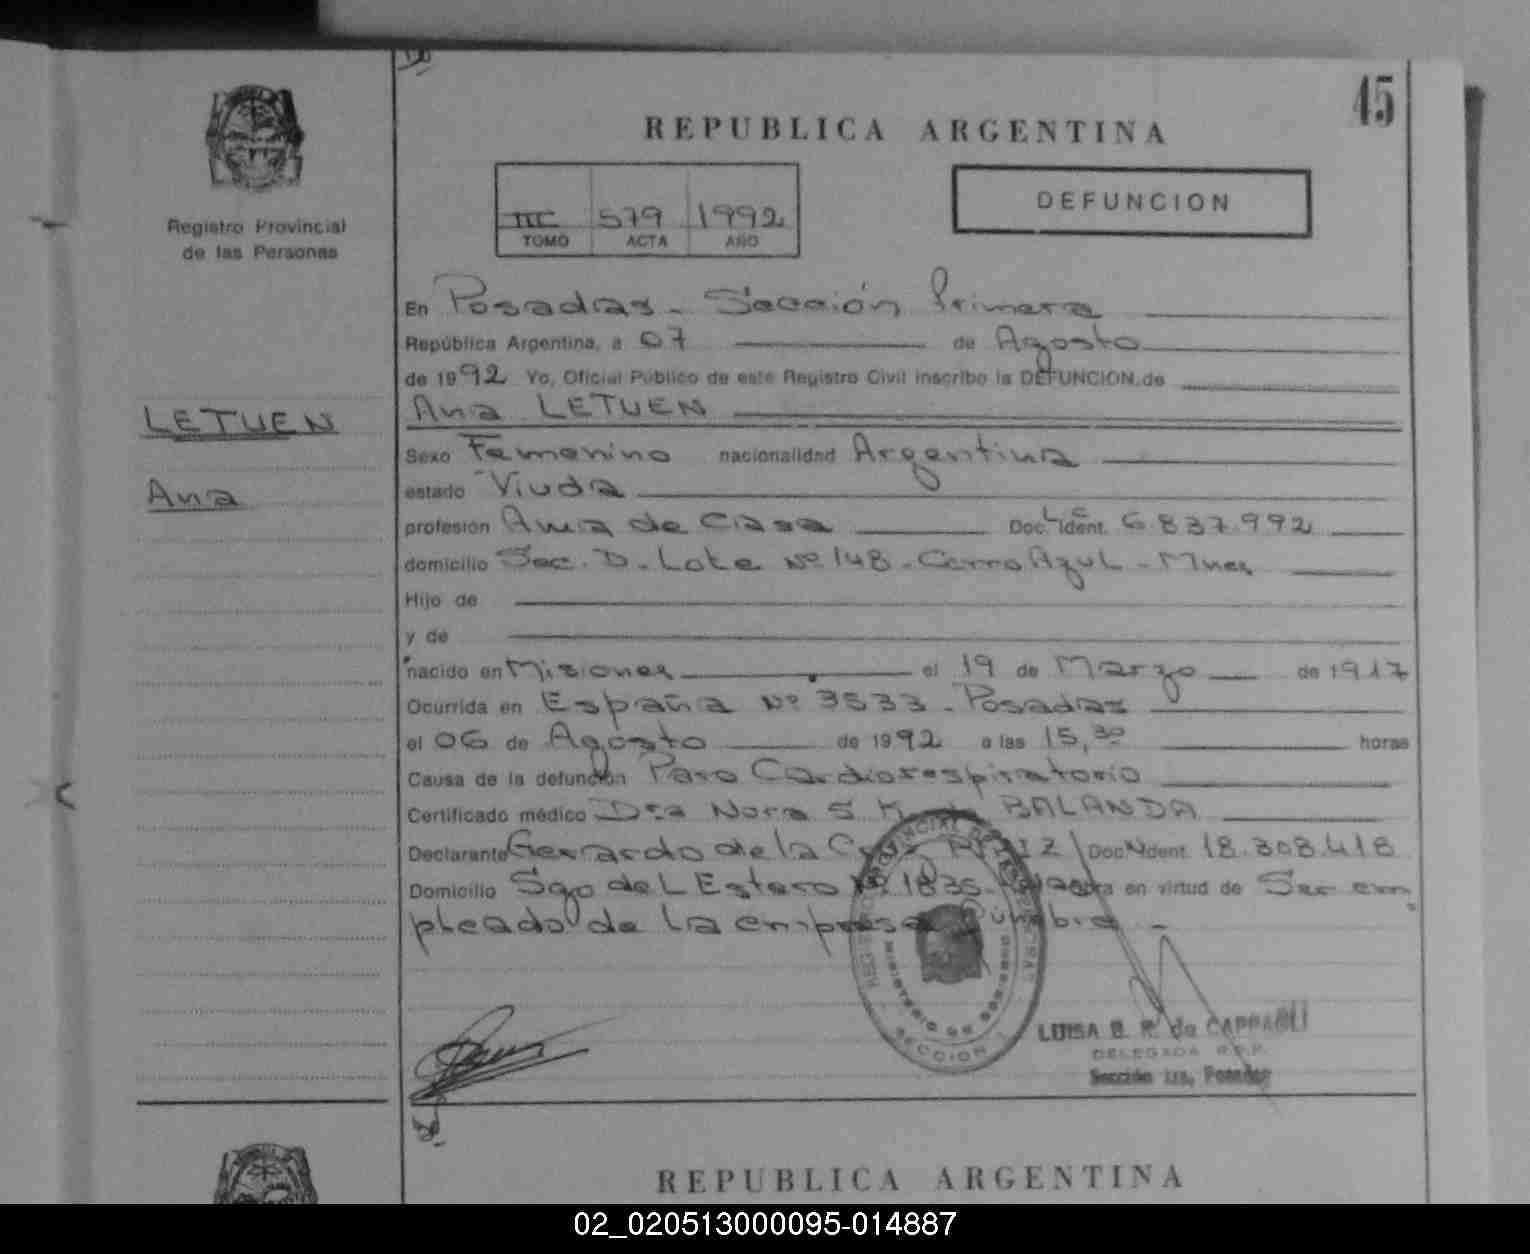 45
REPUBLICA ARGENTINA
DEFUNCION
III 579 1992
TOMO ACTA AÑO
Registro Provincial
de las Personas
LETUEN
Ana
En Posadas - Sección Primera
República Argentina, a 07 de Agosto
de 1992 Yo, Oficial Público de este Registro Civil inscribo la DEFUNCION, de
Ana LETUEN
Sexo Femenino nacionalidad Argentina
estado Viuda
profesión Ama de Casa Doc. Ident. L C 6.837.992
domicilio Sec. D. Lote Nº 148 - Cerro Azul - Mnes
Hijo de
y de
nacido en Misiones el 19 de Marzo de 1917
Ocurrida en España Nº 3533 - Posadas
el 06 de Agosto de 1992 a las 15,30 horas
Causa de la defunción Paro Cardiorespiratorio
Certificado médico Dra Nora S. de BALANDA
Declarante Gerardo de la Cruz Doc. Ident. 18.303.418
Domicilio Sgo del Estero Nº 1835 - obra en virtud de Ser em
pleado de la empresa Fúnebre -
REGISTRO PROVINCIAL DE LAS PERSONAS
MINISTERIO DE GOBIERNO
SECCION 1
LUISA B. R. de CAPPAGLI
DELEGADA R.P.P.
Sección 1ra, Posadas
REPUBLICA ARGENTINA
02_020513000095-014887